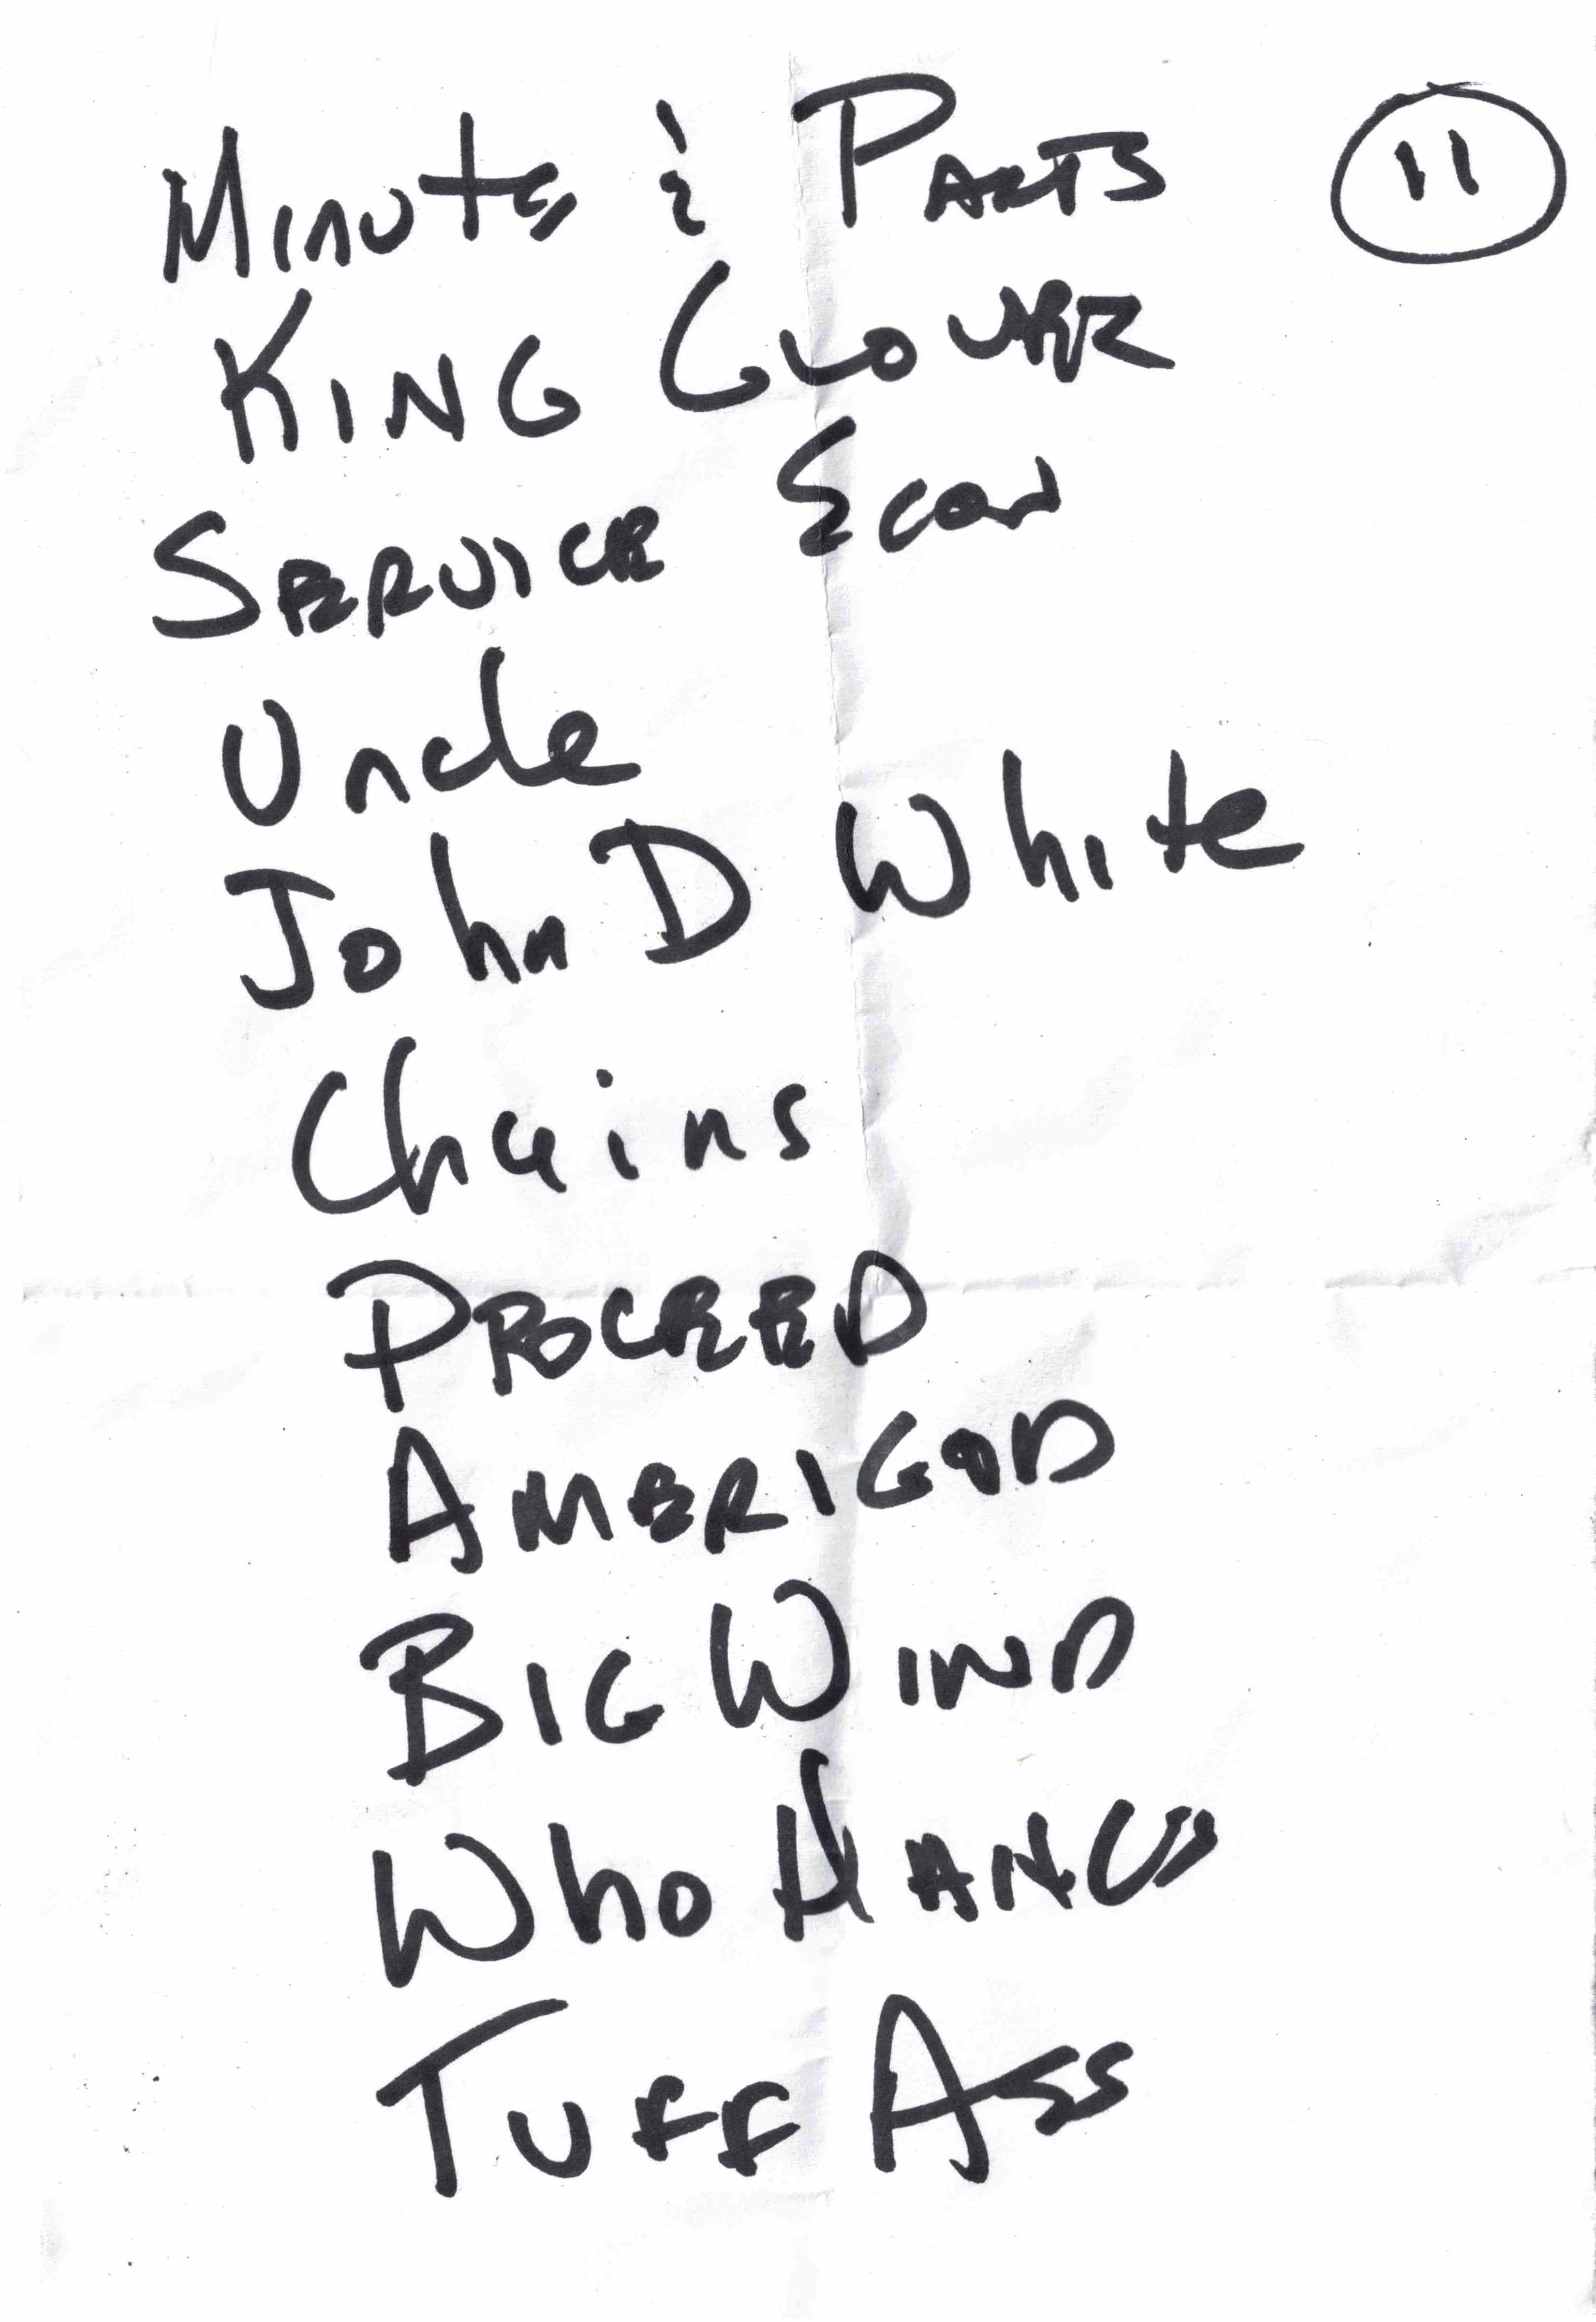 Minute & Parts 11
King Glover
Service Scow
Uncle
John D White
Chains
Proceed
Amerigod
Big Wind
Who Hangs
Tuff Ass